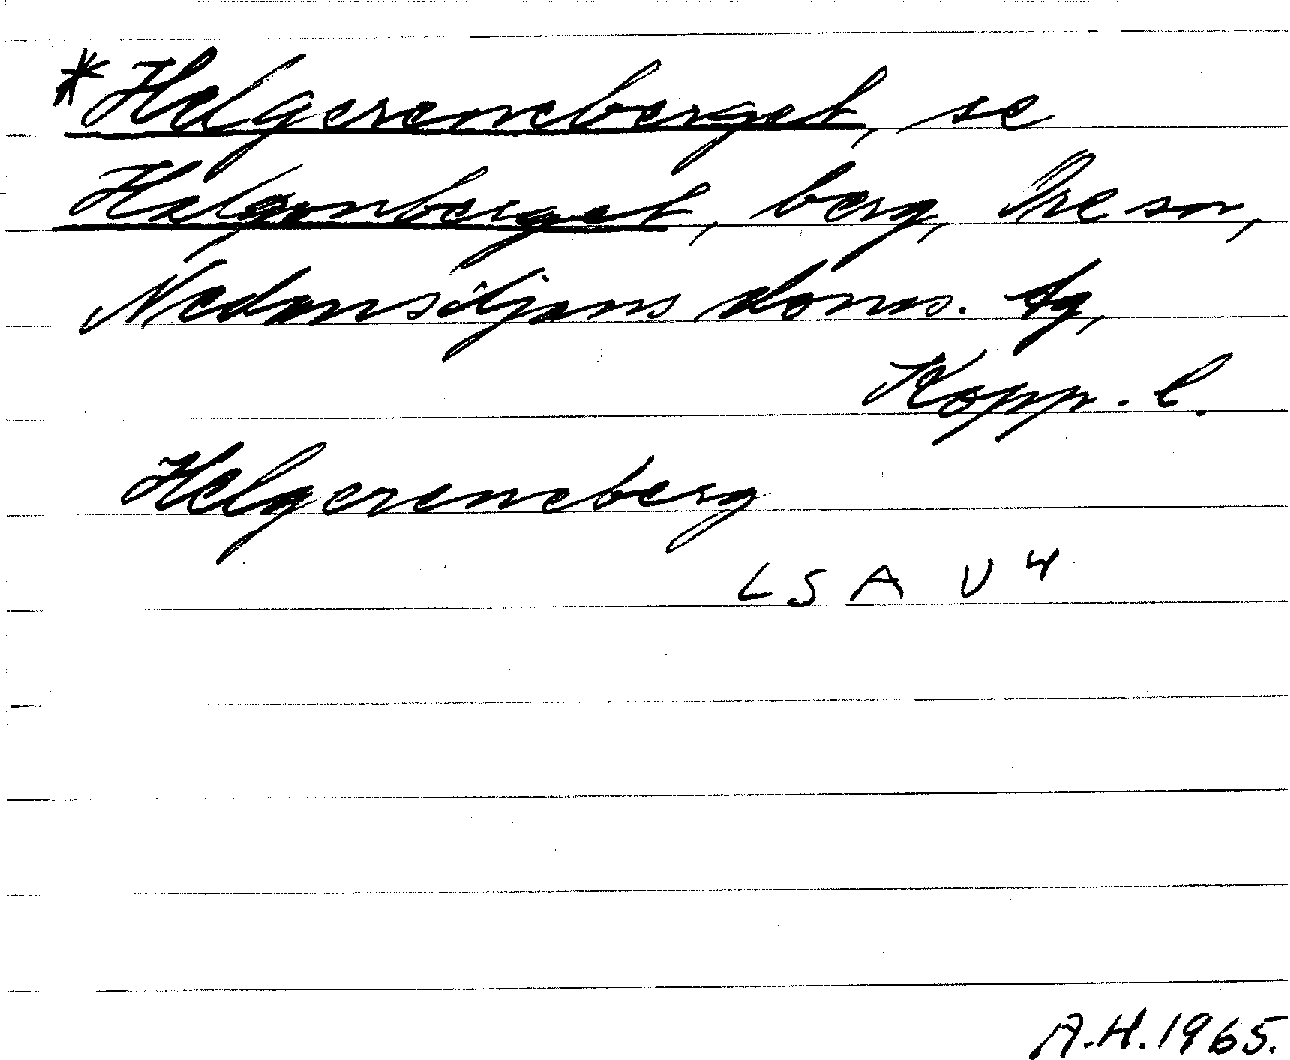 *Helgereneberget, se
Helgonberget, berg, Ore sn,
Nedansiljans doms. tg,
Kopp. l.
Helgereneberg
LSA U 4
A.H. 1965.